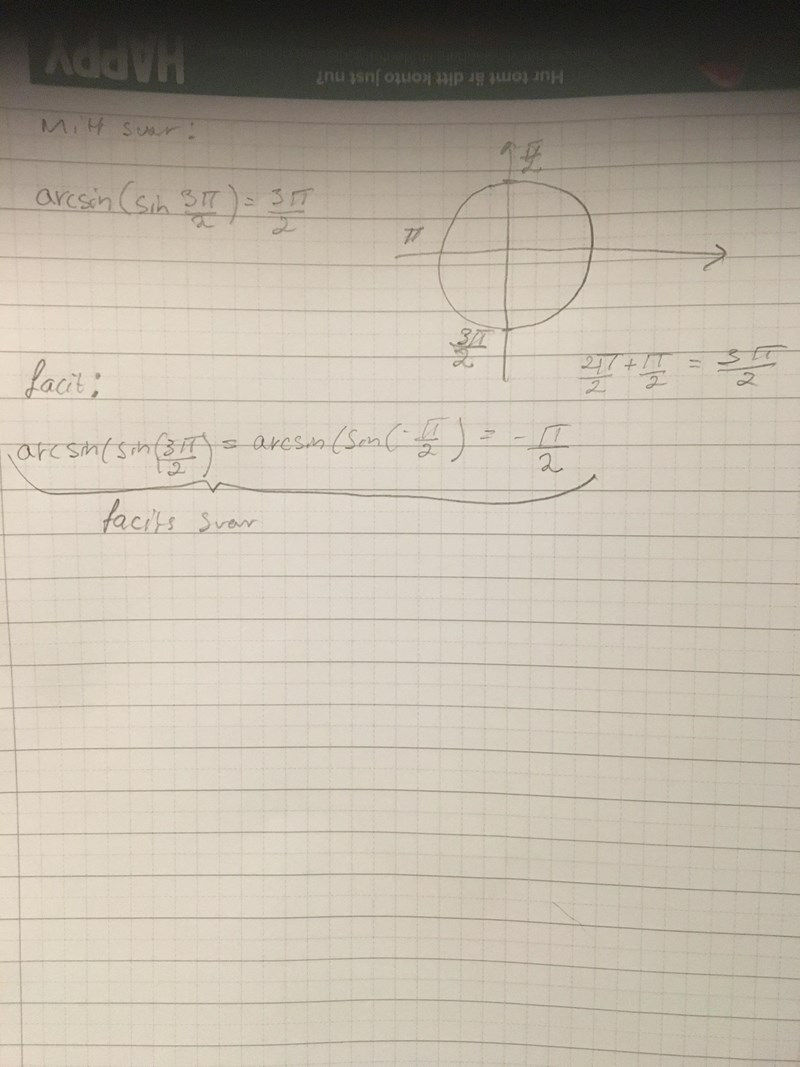 HAPPY
Hur tomt är ditt konto just nu?
Mitt svar:
arcsin(sin 3π/2) = 3π/2
π/2
π
3π/2
2π/2 + π/2 = 3π/2
facit:
arcsin(sin(3π/2) = arcsin(sin(-π/2) = -π/2
facits svar